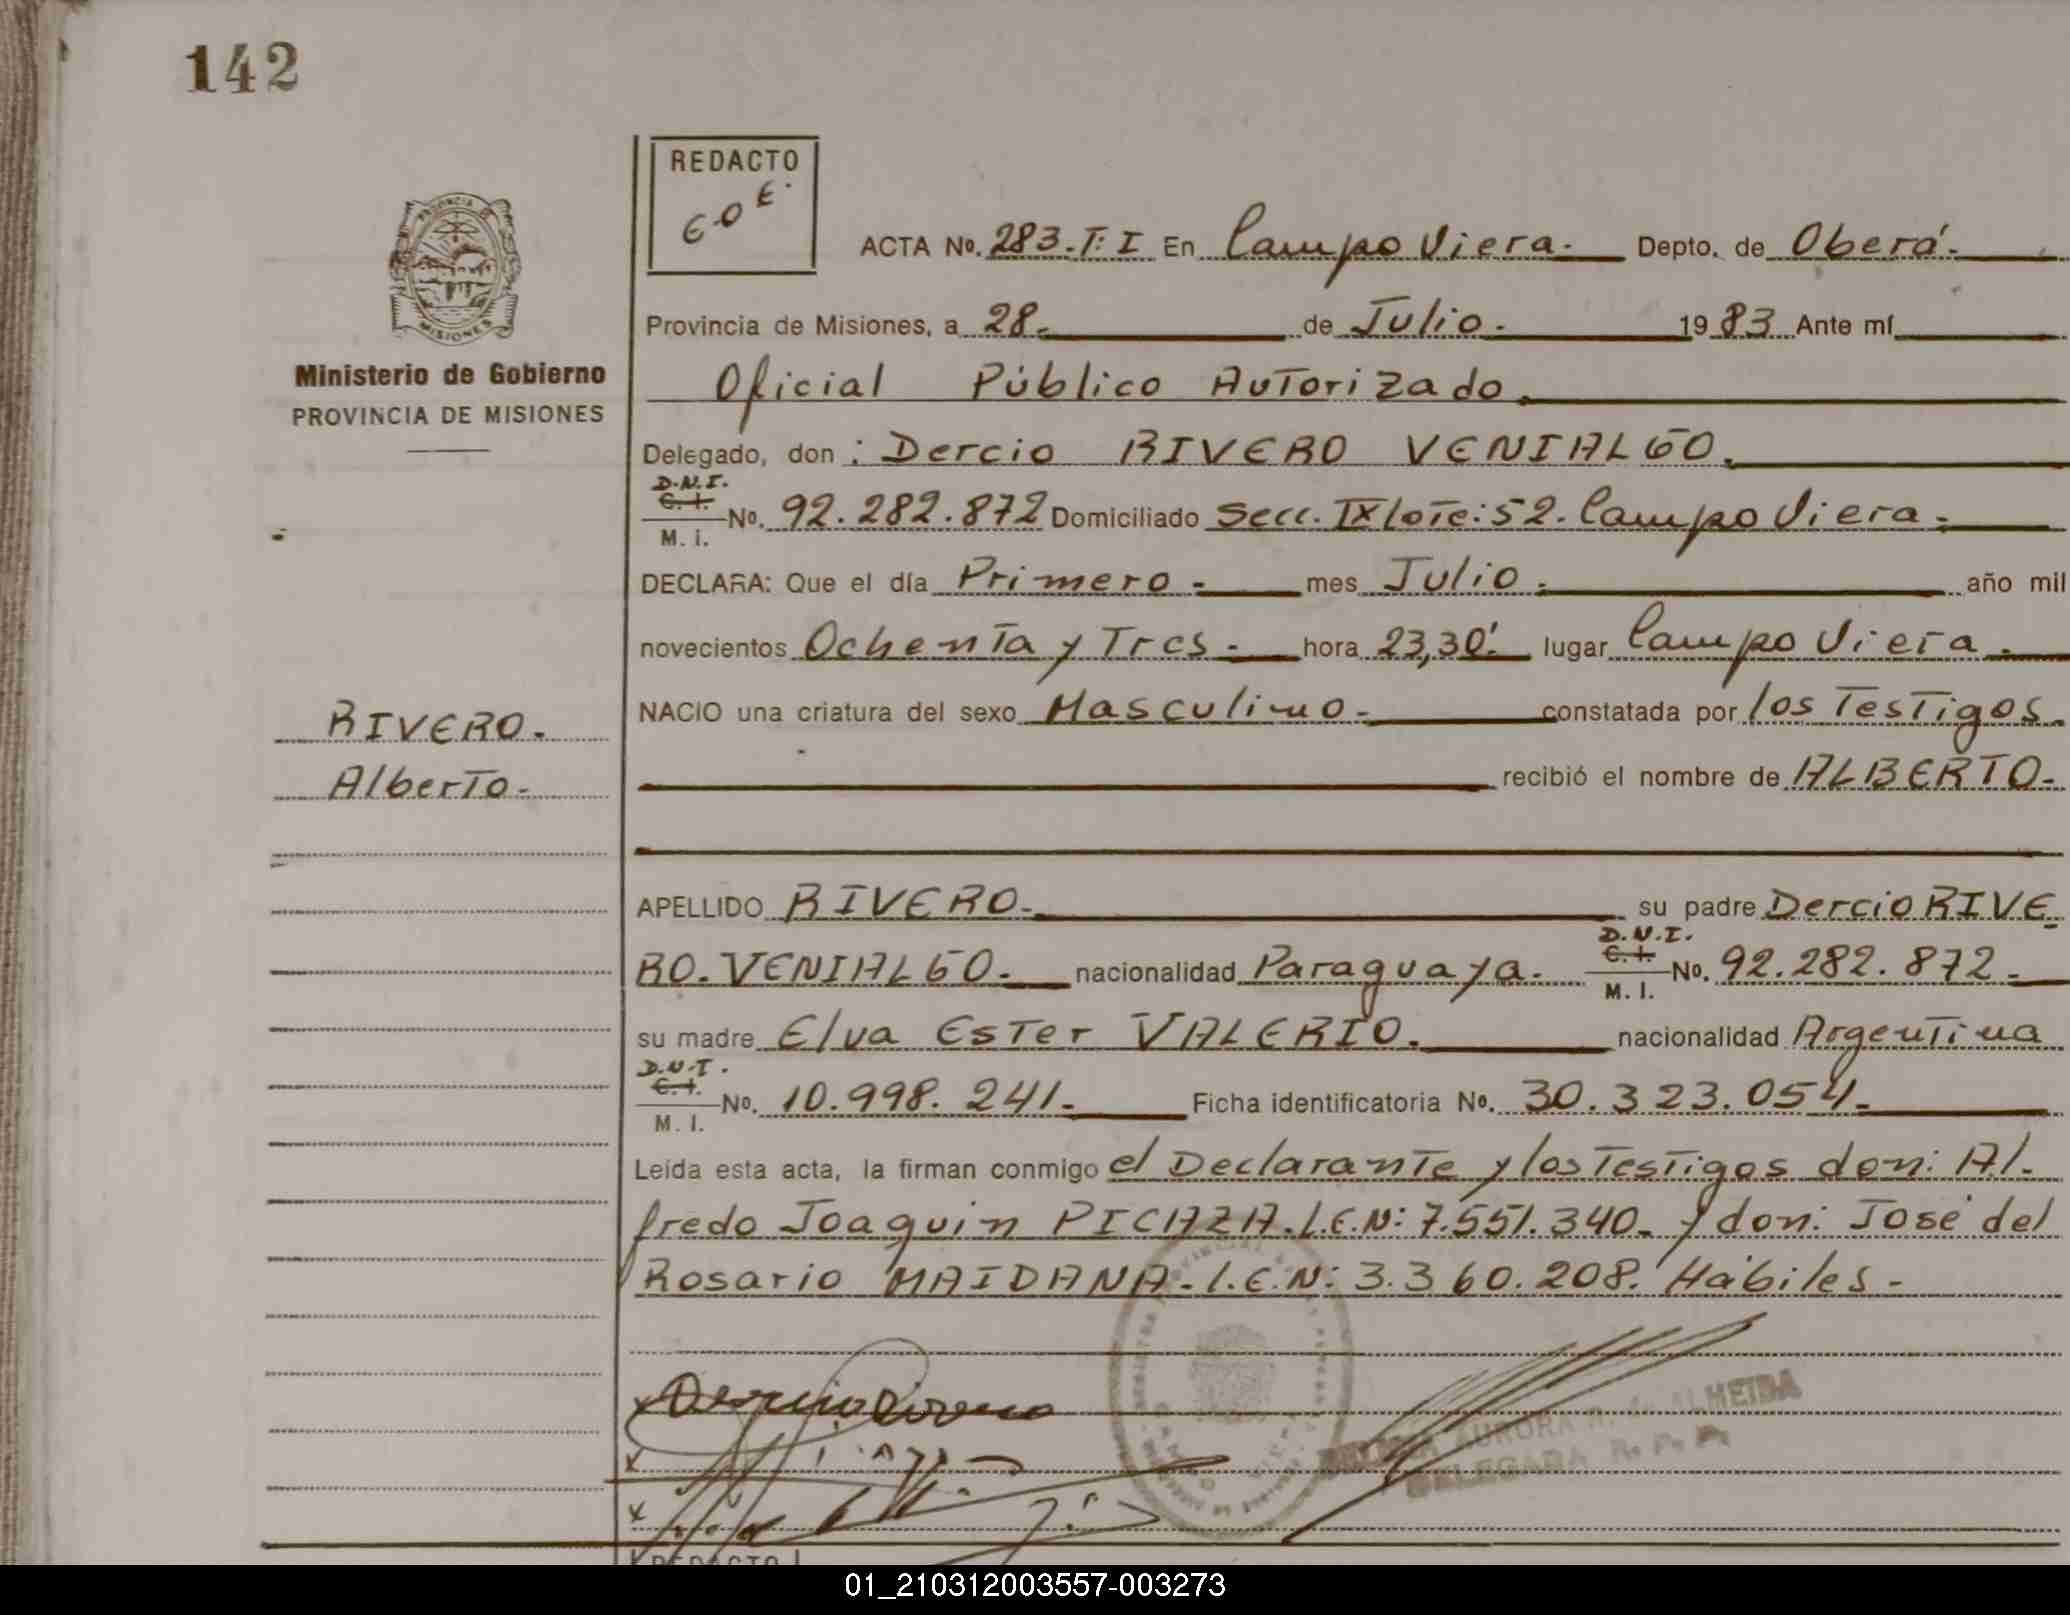 142
REDACTO
E.O.E.
PROVINCIA DE
MISIONES
Ministerio de Gobierno
PROVINCIA DE MISIONES
ACTA No. 283.T:I En Campo Viera. Depto. de Oberá.
Provincia de Misiones, a 28. de Julio. 1983 Ante mí
Oficial Público Autorizado.
Delegado, don: Dercio RIVERO VENIALGO.
D.N.I.
C.I.
No. 92.282.872 Domiciliado Secc. IX lote: 52. Campo Viera.
M. i.
DECLARA: Que el día Primero. mes Julio. año mil
novecientos Ochenta y Tres. hora 23,30'. lugar Campo Viera.
NACIO una criatura del sexo Masculino. constatada por los Testigos.
RIVERO.
Alberto.
recibió el nombre de ALBERTO.
APELLIDO RIVERO. su padre Dercio RIVE
RO. VENIALGO. nacionalidad Paraguaya.
D.N.I.
C.I.
No. 92.282.872.
M. I.
su madre Elva Ester VALERIO. nacionalidad Argentina
D.N.I.
C.I.
No. 10.998.241. Ficha identificatoria No. 30.323.054.
M. I.
Leída esta acta, la firman conmigo el Declarante y los Testigos don: Al-
fredo Joaquin PICAZA. L.E.N: 7.551.340. y don: José del
Rosario MAIDANA. L.E.N: 3.360.208. Hábiles.
x Dercio Rivero
x
x
AURORA ALMEIDA
DELEGADA R. P. P.
REDACTO
01_210312003557-003273